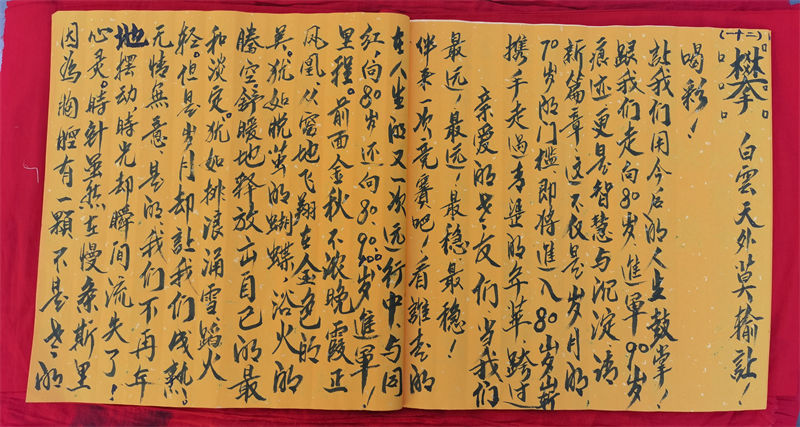 因為胸膛有一顆不是老的
心灵。時針虽然在慢条斯里
地摆动時光却瞬间流失了!
无情無意,是的,我们不再年
轻。但是岁月却讓我们成熟。
和淡定。犹如排浪涌雪蹈火
騰空舒暖地释放出自己的最
美。犹如脱茧的蝴蝶,浴火的
凤凰从窝地飞翔在金色的
里程。前面金秋不浓晚霞正
红,向80岁还向80、90、100岁進軍!
在人生的又一次远行中,与同
伴来一次竞赛吧!看誰走的
最远,最远;最稳,最稳!
亲爱的老友们,当我们
攜手走過青澀的年華,跨过
70岁的门槛,即将進入80岁嶄
新篇章,这不仅是岁月的
痕迹更是智慧与沉淀,请
跟我们走向80岁,進軍90岁
讓我们用今后的人生鼓掌!
喝彩!
(二十一)
攀 白雲天外莫輸讓!